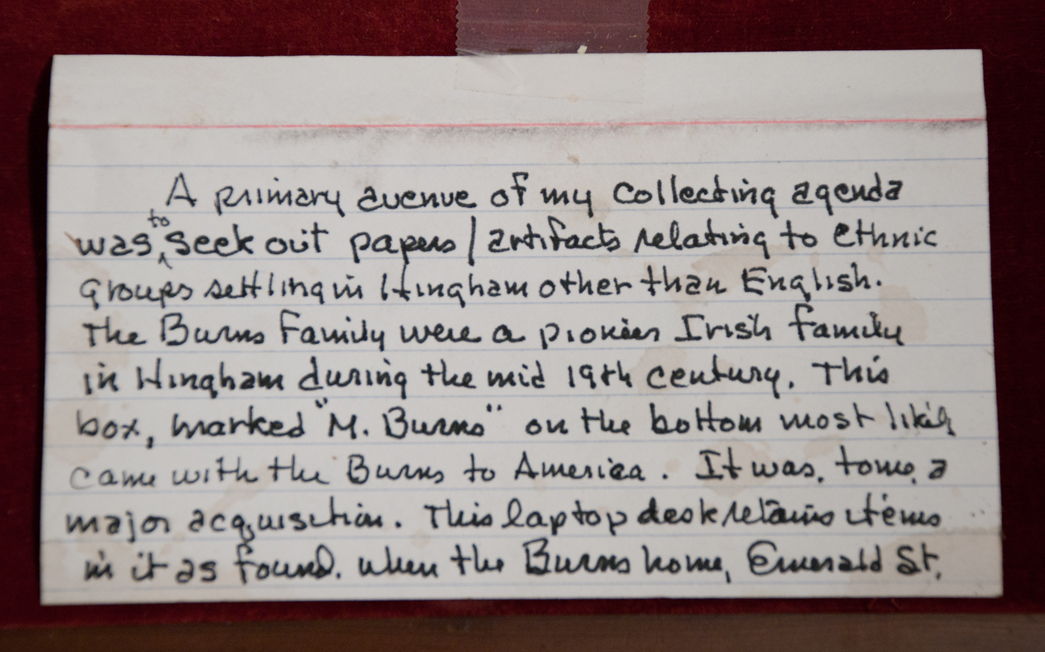 A primary avenue of my collecting agenda
was to seek out papers/artifacts relating to ethnic
groups settling in Hingham other than English.
The Burns Family were a pioneer Irish family
in Hingham during the mid 19th century. This
box, marked "M. Burns" on the bottom most likely
came with the Burns to America. It was, to me, a
major acquisition. This laptop desk retains items
in it as found. When the Burns home, Emerald St.